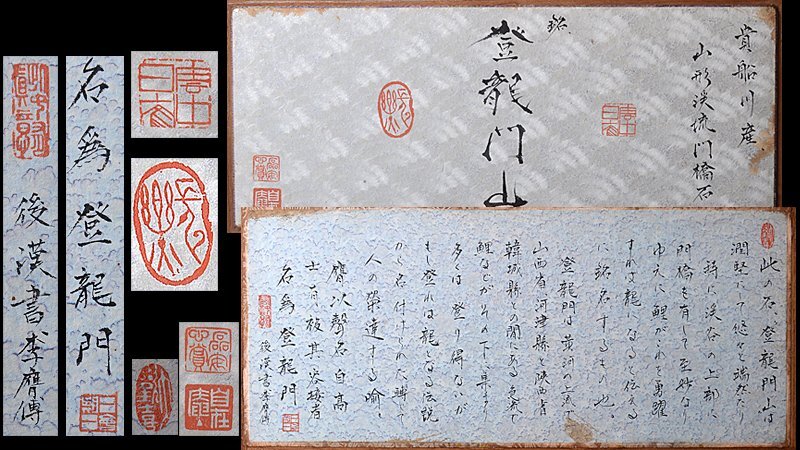 貴船川産
山形渓流門橋石
銘
登龍門山
此の石、登龍門山は
潤堅にして悠々
特に渓谷の上部に
門橋を有して至妙なり
ゆえに鯉がこれを勇躍
すれば龍になると伝える
に銘名するもの也。
登龍門は黄河の上流で
山西省河津縣と陝西省
韓城縣との間にある急流で
鯉などがその下に集まり
多くは登り得ないが
もし登れば龍となる伝説
から名付けられた
人の榮達する喩。
膺以聲名自高
士有被其容接者
名為登龍門
後漢書李膺傳
名為登龍門
後漢書李膺傳